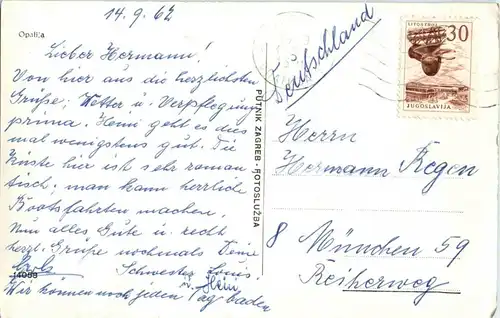 14.9.62
Opatija
Lieber Hermann!
Von hier aus die herzlichsten
Grüße; Wetter u. Verpflegung
prima. Heini geht es dies
mal wenigstens gut. Die
Küste hier ist sehr roman
tisch; man kann herrliche
Bootsfahrten machen.
Nun alles Gute u. recht
herzl. Grüße nochmals Deine
Schwester
u. Heini
14089
Wir können noch jeden Tag baden
PUTNIK ZAGREB - FOTOSLUŽBA
Deutschland
30
JUGOSLAVIJA
Herrn
Hermann Regen
8 München 59
Reiherweg